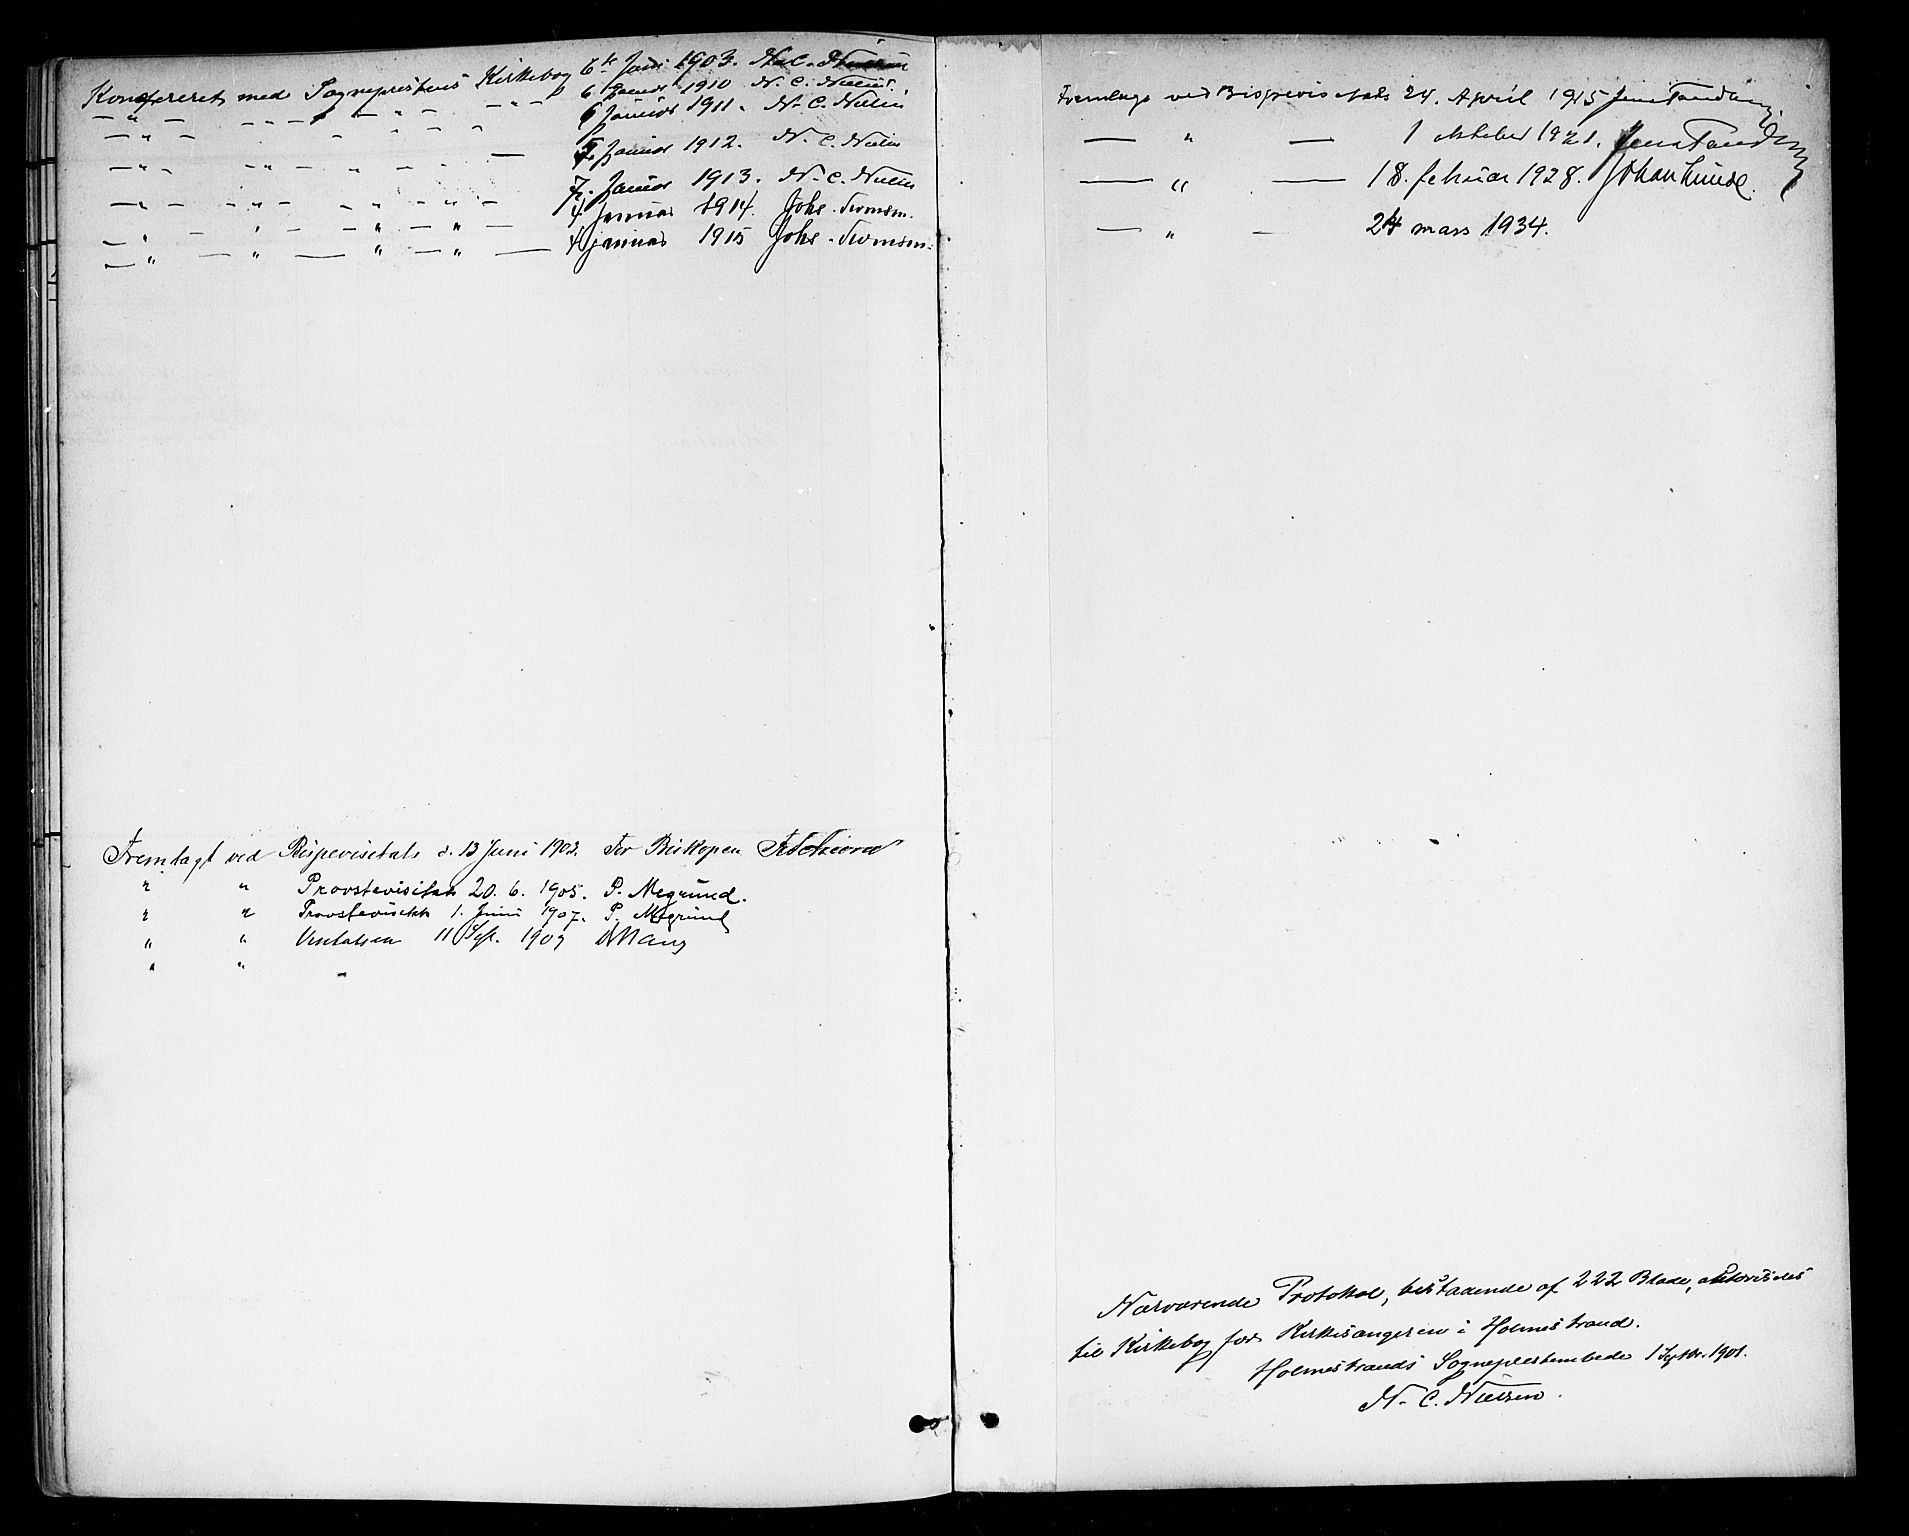 Konfereret med Sogneprestens Kirkebog 6te Juni 1903. N. C. Nielsen
— " — — " — — " — — " — 6 Januar 1910 N. C. Nielsen
— " — — " — — " — — " — 6 Januar 1911. N. C. Nielsen
— " — — " — — " — — " — Januar 1912. N. C. Nielsen
— " — — " — — " — — " — 7. Januar 1913. N. C. Nielsen
— " — — " — — " — — " — 4 januar 1914. Johs.
— " — — " — — " — — " — 4 januar 1915 Johs.
Fremlagt ved Bispevisitats d. 13 Juni 1902. For Biskopen
" " Provstevisitats 20. 6. 1905. P. Mægrund.
" " Provstevisitats 1. Juni 1907. P. Mægrund
" " Visitatsen 11 Sept. 1909
" " "
Fremlagt ved Bispevisitats 24. April 1915 Jens Tandberg
— " — 1 oktober 1921. Jens Tandberg
— " — 18. februar 1928. Johan Lunde.
— " — 24 mars 1934.
Nærværende Protokol, bestaaende af 222 Blade, autoriseres
til Kirkebog for Kirkesangeren i Holmestrand.
Holmestrands Sogneprestembede 1 Septbr. 1901.
N. C. Nielsen.